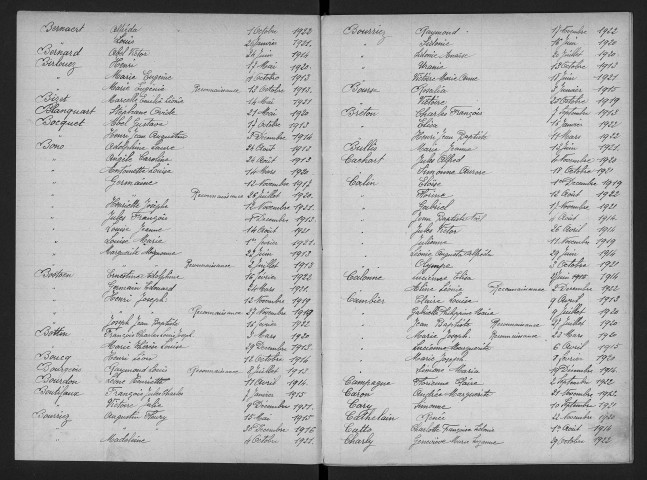 Bernaert Alfréda 1 Octobre 1922
" Louis 26 Janvier 1921.
Bernard Abel Victor 24 Juin 1914
Birlouez Henri 17 Mai 1920
" Marie Eugénie 9 Octobre 1913
" Marie Eugénie Reconnaissance 13 Octobre 1913.
Bizet Marcelle Emilie Léonie 14 Mai 1921
Blanquart Stéphane 21 Mai 1920
Bocquet Abel Gustave 17 Octobre 1913
" Henri Jean Augustin 3 Décembre 1914
Bono Adolphine Laure 24 Août 1913
" Angèle Caroline 24 Août 1913
" Antoinette Louise 14 Mars 1920
" Germaine 12 Novembre 1913
" Reconnaissance 26 Juillet 1920
" Henriette Joseph 12 Novembre 1921
" Jules François Décembre 1913
" Louis Jeanne 14 Août 1921
" Louise Marie 1er Février 1921.
" Marguerite 22 Juin 1913
" Reconnaissance Juillet 1913
Bottien Ernestine 15 Février 1922
" Germain Edouard 24 Mars 1921
" Henri Joseph 12 Novembre 1919
" Reconnaissance 29 Novembre 1919
" Joseph Jean Baptiste 16 Janvier 1922
Bottin François Charles 3 Mars 1920
" Marie Louise 29 Décembre 1913
Boucq Henri Léon 12 Octobre 1914
Bourgeois Raymond Louis Reconnaissance 8 Juillet 1913
Bourdon Henriette 11 Avril 1914
Boutifaux François Jules Charles 7 Janvier 1915
" Victoire Julia 9 Décembre 1921
Bourriez Augustin Fleury 15 Mai 1915
" 25 Décembre 1916
" Madeleine 4 Octobre 1921
Bourriez Raymond 17 Novembre 1922
" Sidonie 16 Juin 1920
" Sidonie 6 Juillet 1920
" Uranie 13 Octobre 1913
" Victoire Marie Anne 18 Juin 1921
Bourse Rosalia 3 Janvier 1915
" Victoire 25 Octobre 1919
Breton Charles François 7 Septembre 1913
" Elise 16 Janvier 1922
" Henri Jean Baptiste 19 Mars 1913
Bullis Marie Jeanne 15 Juin 1921
Cachart Jules Alfred 4 Novembre 1920
" Suzanne Aurore 18 Octobre 1921
Calin Eloïse 1er Décembre 1919
" Florisa 12 Août 1922
" Gabriel 17 Novembre 1921
" Jean Baptiste 4 Août 1914
" Jules Victor 26 Avril 1914
" Julienne 11 Novembre 1919
" Louis Auguste 29 Juin 1914
" Olympe 3 Octobre 1921
Calonne Lucienne Elisa Juin 1914
" Aline Léonie Reconnaissance 2 Décembre 1922
Cambier Claire Louise 9 Avril 1913
" Gabrielle Philippine Maria 9 Juillet 1920
" Jean Baptiste Reconnaissance 27 Juillet 1920
" Marie Joseph Reconnaissance 23 Mars 1920
" Lucienne Marguerite 6 Avril 1915
" Marie Joseph 8 Février 1920
" Marie 19 Décembre 1914
Campagne Florienne Claire 2 Septembre 1922
Caron Andrée Marguerite 25 Novembre 1922
Cary Simonne 10 Septembre 1921
Cathelain Renée 12 Novembre 1920
Catto Charlotte Françoise 1er Août 1914
Charly Geneviève Marie Suzanne 29 Octobre 1922